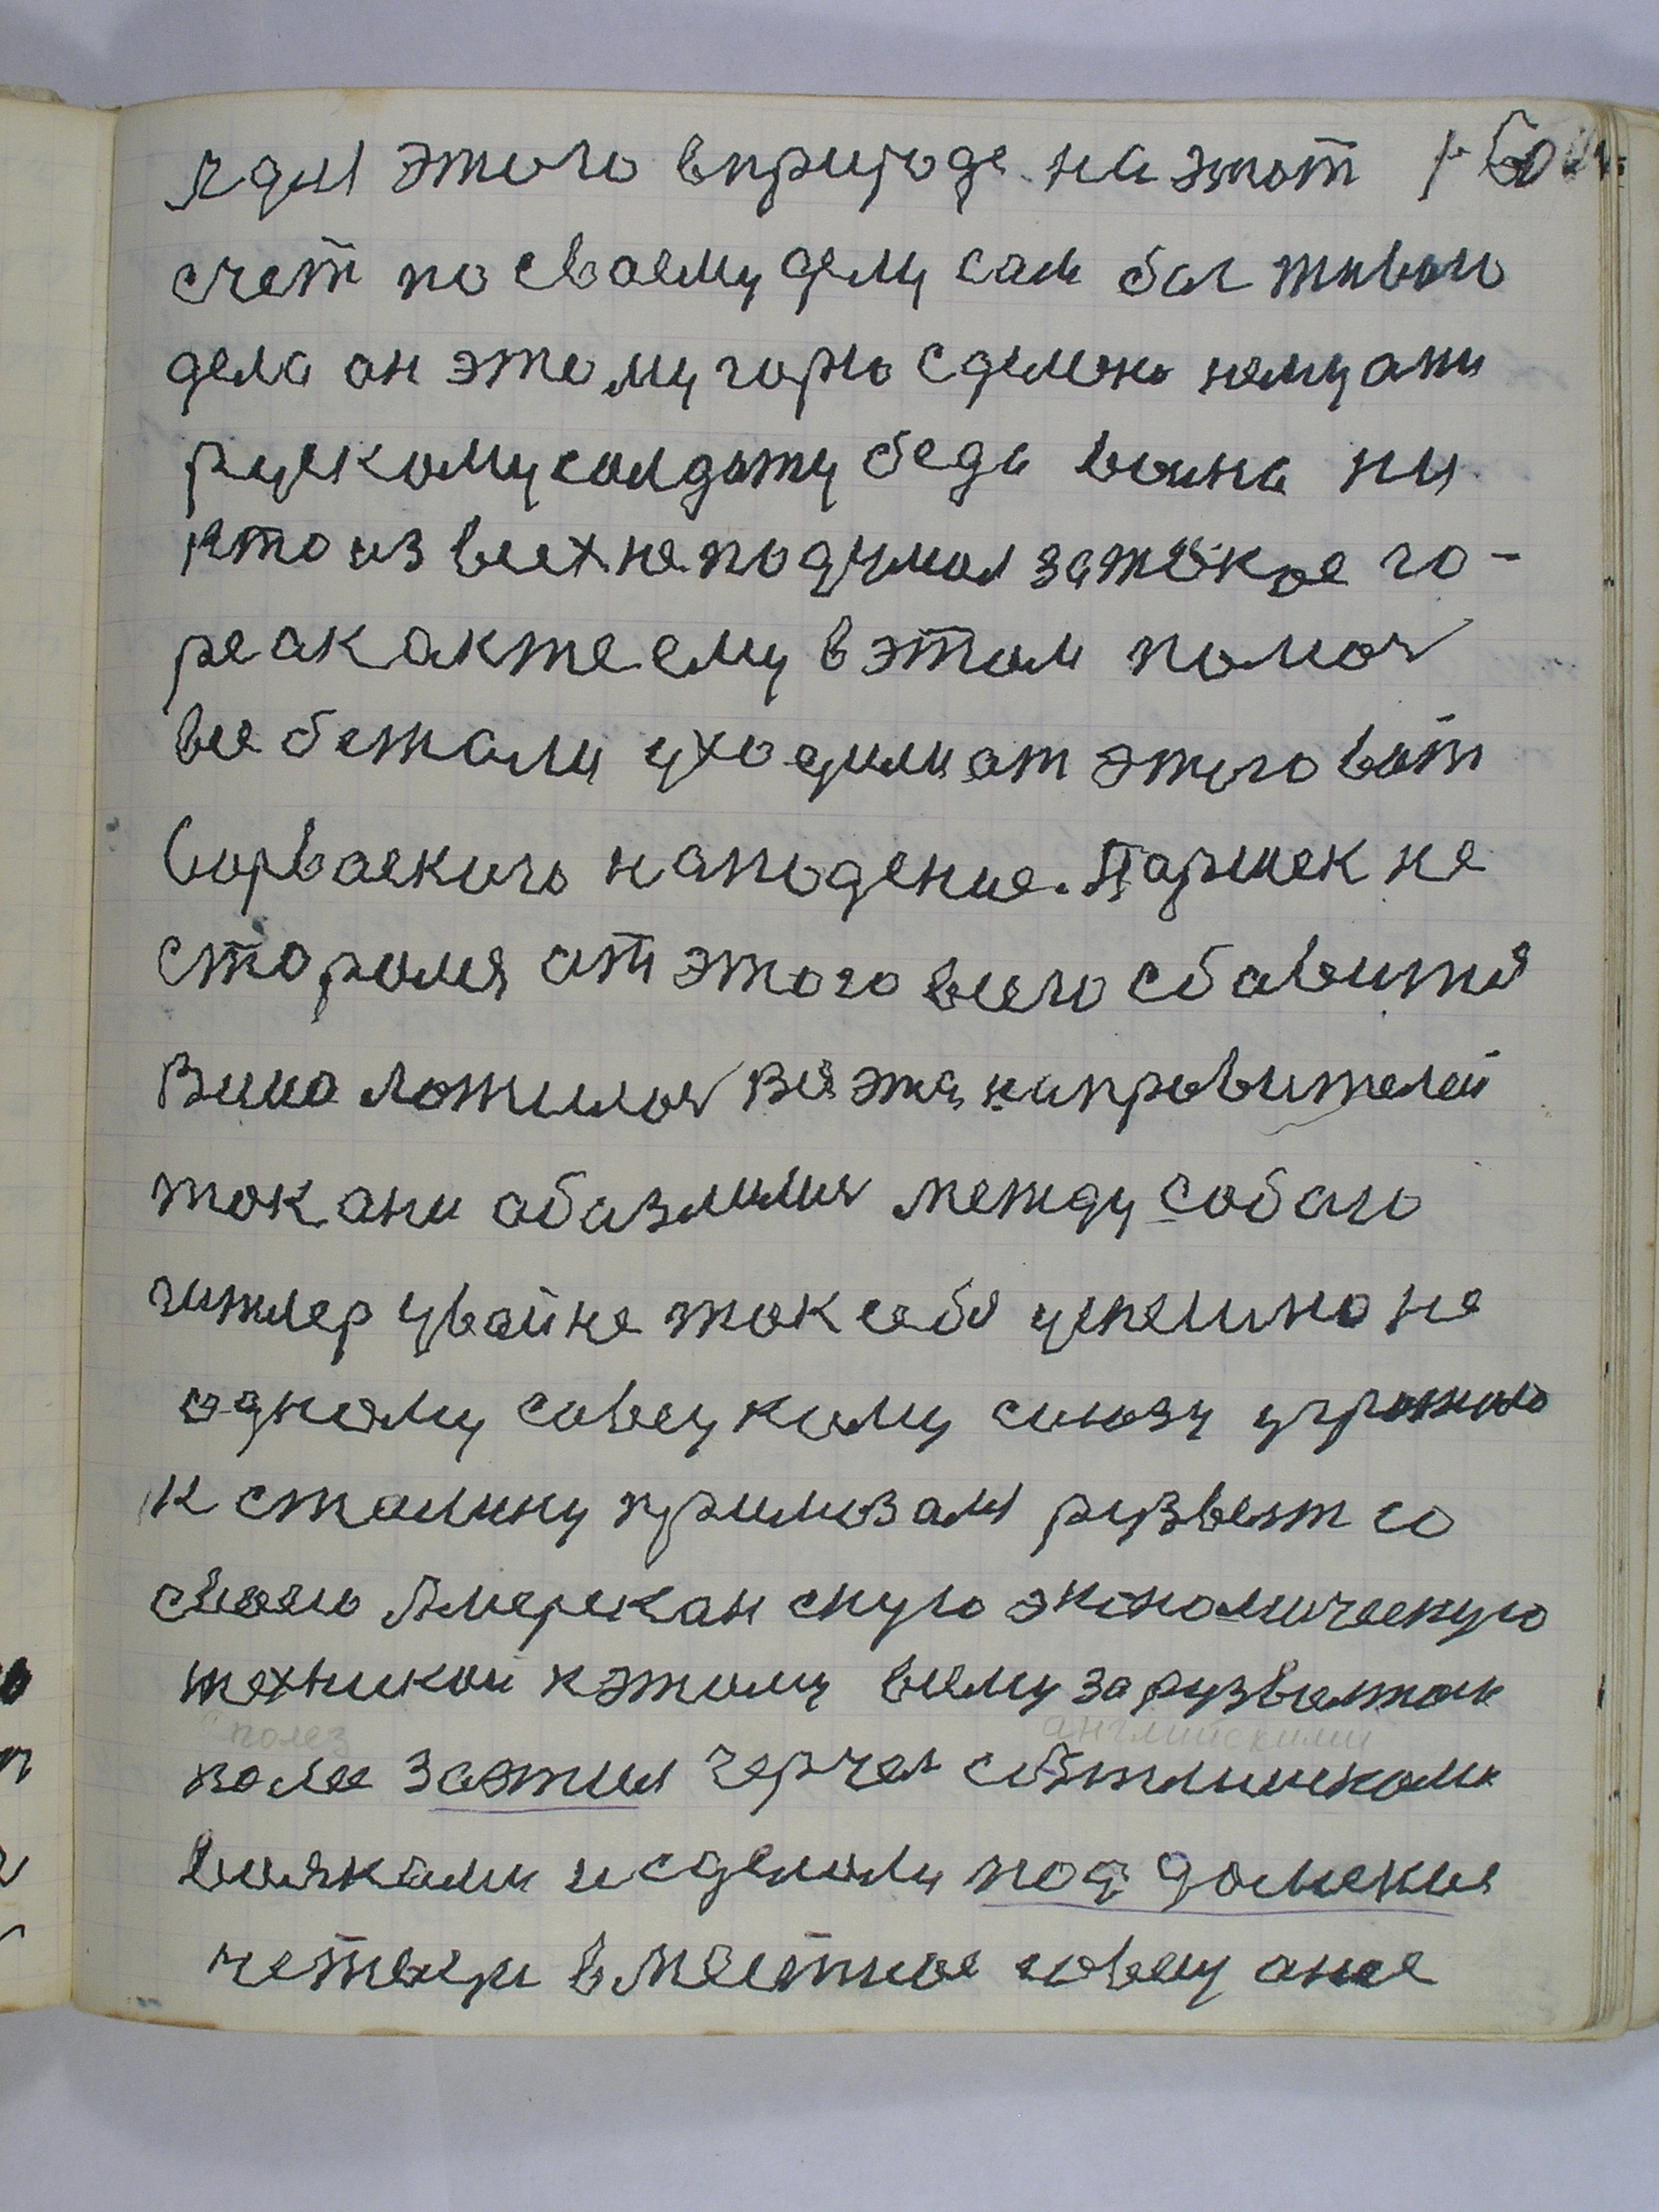 ради этого в природе на этот
счет по своему делу сам бог живого
дела он этому горю сделоно немцами
рускому солдату беда воина ни
кто из всех не подумал за такое го-
ре а как же ему в этом помоч
все бежали уходили от этого вот
ворваского нападение. Паршек не
сторолся от этого всего сбавится
вино ложилось вся эта на провителей
ток ани обазлилися между собою
гитлер у войне ток себя успешно не
одному совецкому союзу угрожало
к сталину прилизал рузвелт со
своею Амереканскую экономическую
техникой к этому всему за рузвелтом
полез английскими
полее за этим Черчел с отличноми
вояками и сделали под домекия
четыри вместное совещание